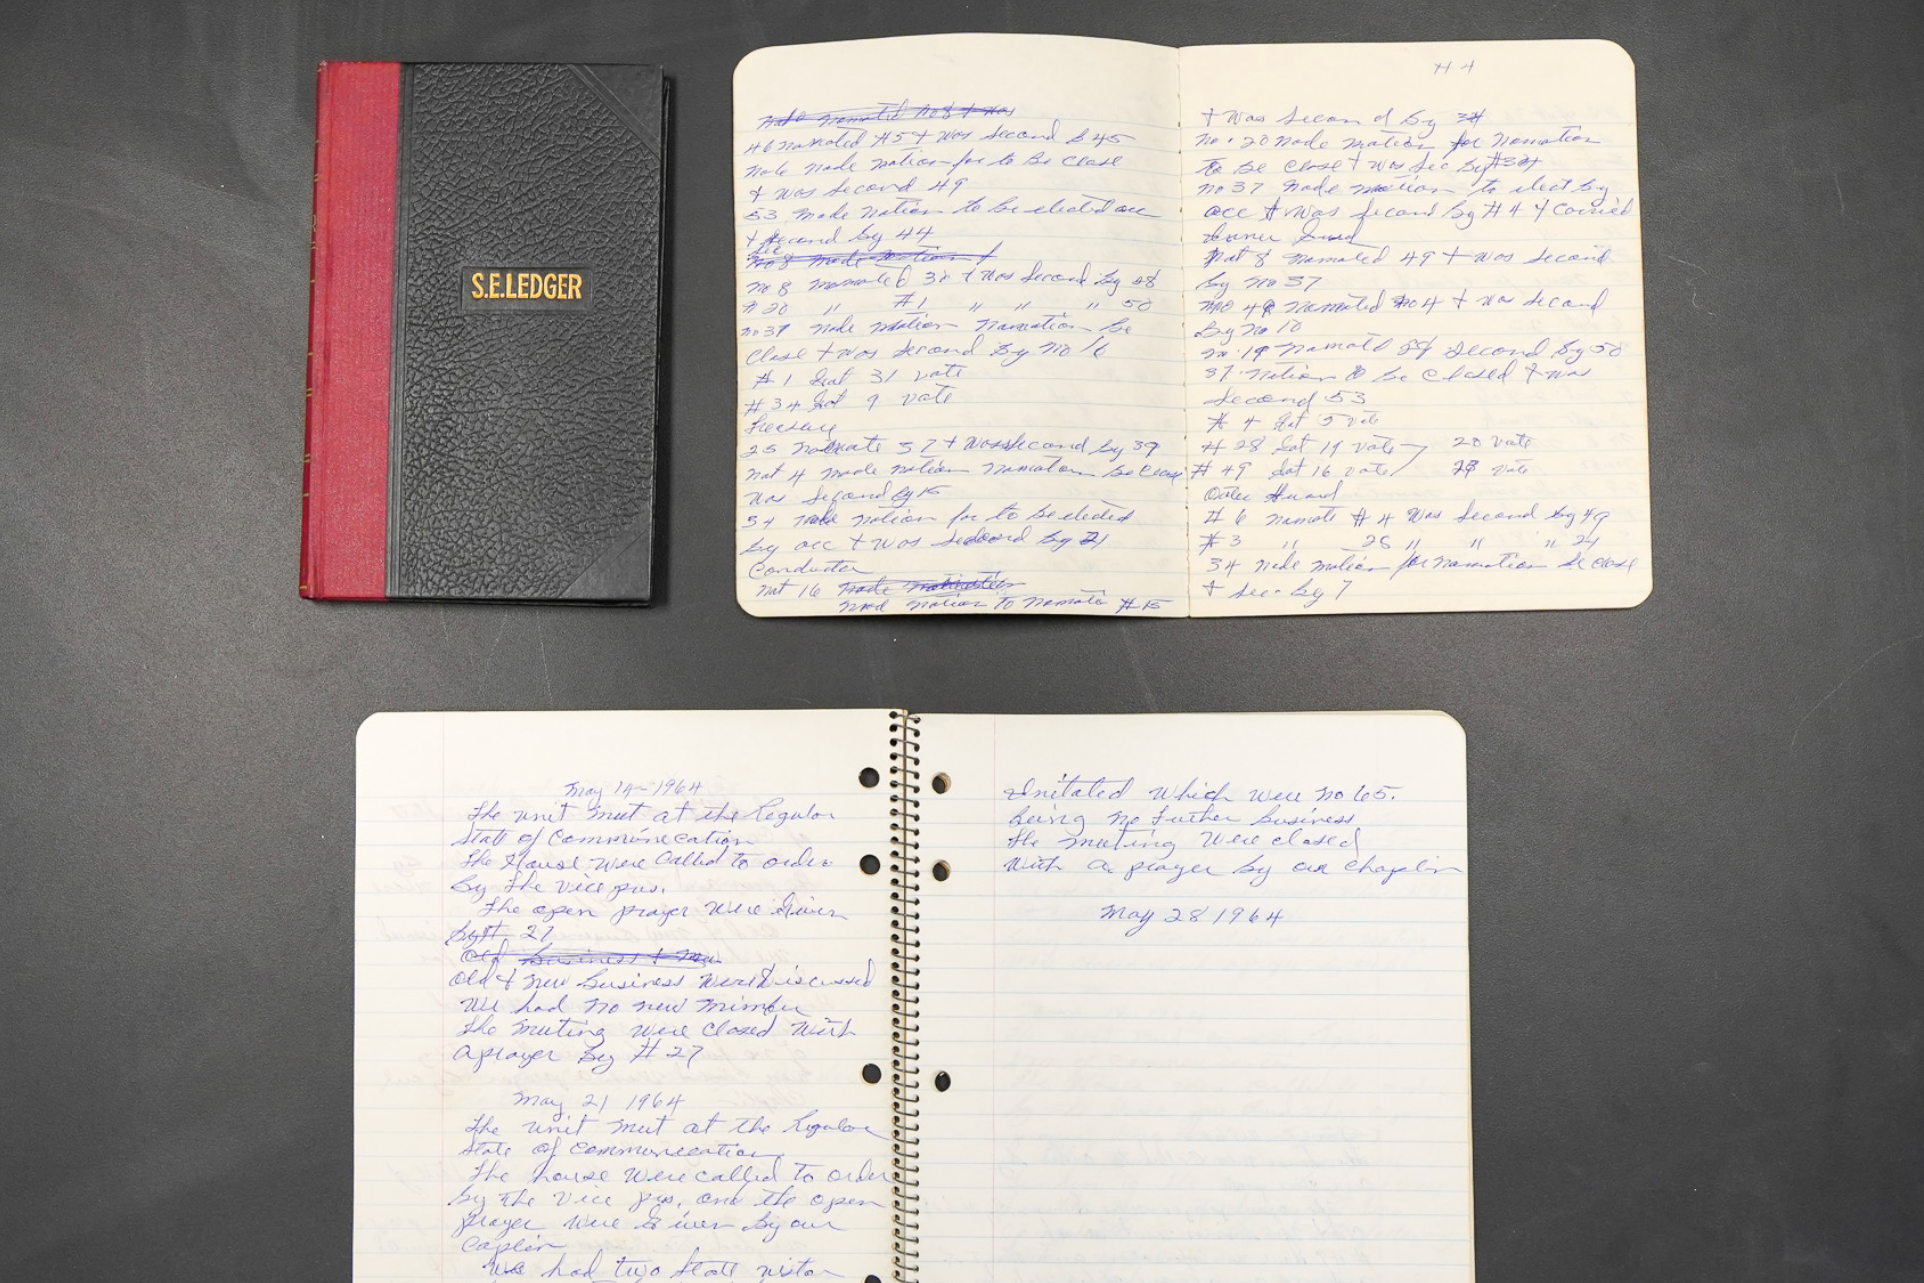 S.E.LEDGER
46 Nomated #5 + Was Second B 45
made motion for to Be Close
+ Was Second 49
53 made motion to be elected acc
+ Second by 44
No 8 nomated 30 + Was Second By 28
20 " #1 " " " 50
No 37 made motion Nomation be
Close + Was Second By No 16
#1 Got 31 vote
#34 Got 9 vote
25 37 + Was Second by 39
4 made motion Nomation be close
Was Second By 15
54 made motion for to be elected
by acc + Was Second by 21
Conductor
16
made motion To Nomate #15
#4
+ Was Second By 34
No. 20 made motion for Nomation
To be close + Was Sec By #34
No 37 made motion to elect by
acc + Was Second By #44 carried
8 Nomated 49 + Was Second
By No 37
Nomated No 4 + Was Second
By No 10
No. 19 Nomated Second By 50
37 motion to be closed + Was
Second 53
#4 Got 5 vote
#28 Got 19 vote 20 vote
#49 Got 16 vote vote
#6 Nomate #4 Was Second By 49
#3 " 28 " " " 21
34 made motion for Nomation be close
+ Sec. By 7
May 14-1964
The unit meet at the Regular
State of Communecation
The House Were Called to order
By the vice pres.
The open prayer Were Given
by # 27
Old business + new
Old + new business Were discussed
We had no new mimber
The meeting Were closed With
a prayer By # 27
May 21 1964
The unit meet at the Regular
State of Communecation
The house Were called to order
by the vice pres. and the open
prayer Were Given by our
Caplin
We had two State visitor
Initated Which Were No 65.
being no further business
the meeting Were closed
With a prayer by our chaplin
May 28 1964